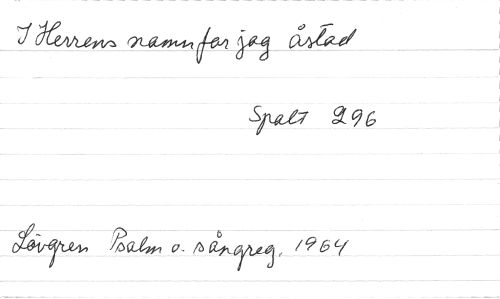 I Herrens namn far jag åstad
Spalt 296
Lövgren Psalm o. sångreg. 1964